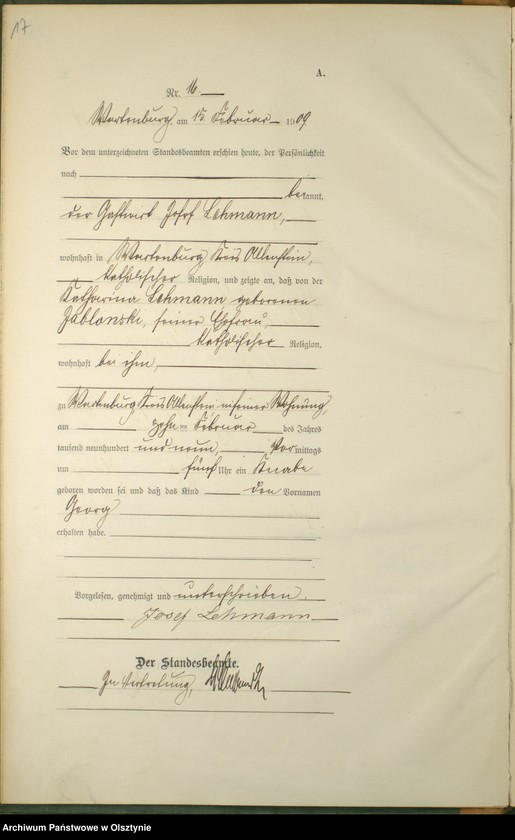 17
A.
Nr. 16.
Wartenburg, am 15. Februar 1909
Vor dem unterzeichneten Standesbeamten erschien heute, der Persönlichkeit
nach
bekannt,
der Gastwirt Josef Lehmann,
wohnhaft in Wartenburg Kreis Allenstein,
katholischer Religion, und zeigte an, daß von der
Katharina Lehmann geborenen
Jablonski, seiner Ehefrau,
katholischer Religion,
wohnhaft bei ihm,
zu Wartenburg Kreis Allenstein in seiner Wohnung,
am zehnten Februar des Jahres
tausend neunhundert und neun, Vormittags
um fünf Uhr ein Knabe
geboren worden sei und daß das Kind den Vornamen
Georg
erhalten habe.
Vorgelesen, genehmigt und unterschrieben.
Josef Lehmann
Der Standesbeamte.
In Vertretung,
Archiwum Państwowe w Olsztynie